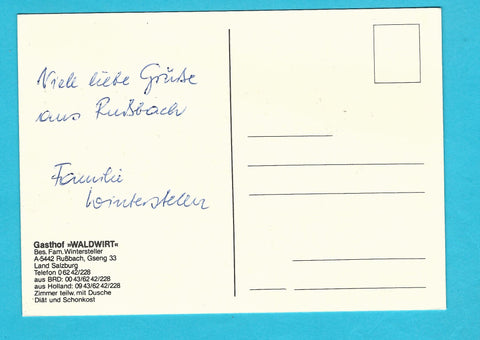 Viele liebe Grüße
aus Rußbach
Familie
Winterstellen
Gasthof »WALDWIRT«
Bes. Fam. Wintersteller
A-5442 Rußbach, Gseng 33
Land Salzburg
Telefon 0 62 42/228
aus BRD: 00 43/62 42/228
aus Holland: 09 43/62 42/228
Zimmer teilw. mit Dusche
Diät und Schonkost